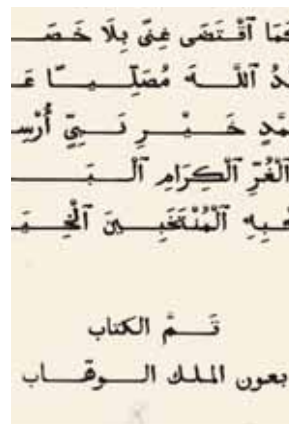 كَمَا ٱقْتَضَى غِنًى بِلَا خَصَـ
ـدُ ٱللَّهَ مُصَلِّيًا عَـ
ـمَّدٍ خَيْرِ نَبِيٍّ أُرْسِـ
ٱلْغُرِّ ٱلْكِرَامِ ٱلْبَـ
ـحْبِهِ ٱلْمُنْتَخَبِينَ ٱلْخِيَـ
تَمَّ الكتاب
بعون الملك الوهّاب